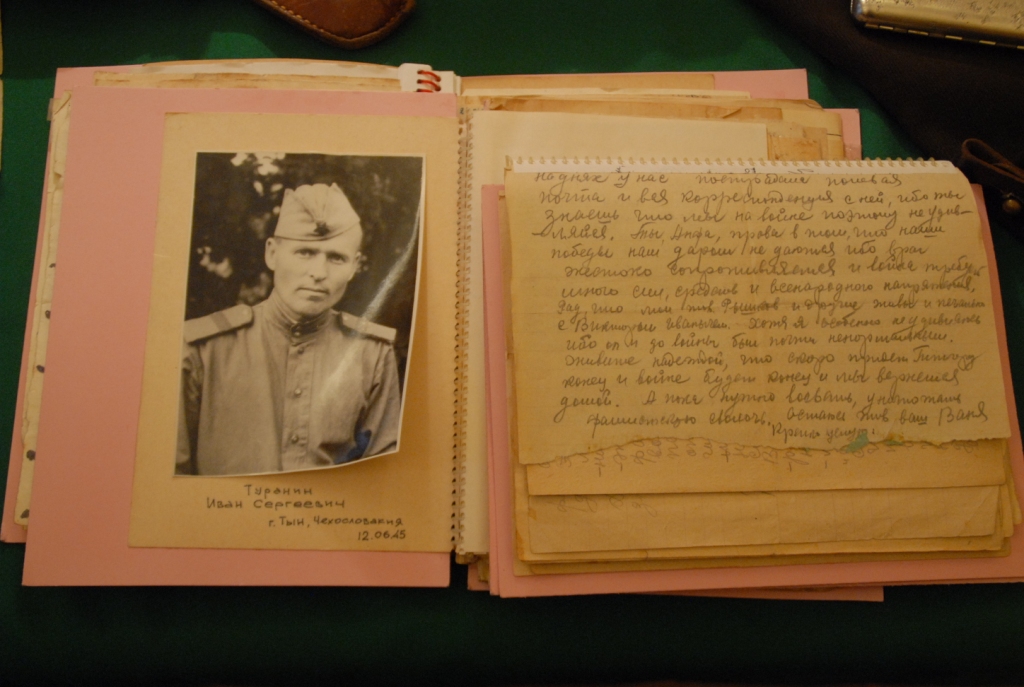 Туранин
Иван Сергеевич
г. Тын, Чехословакия
12.06.45
на днях у нас пострадала полевая
почта и вся корреспонденция с ней, ибо ты
знаешь что мы на войне поэтому не удив-
ляйся. Ты, права в том, что наши
победы нам даром не даются ибо враг
жестоко сопротивляется и война требует
много сил, средств и всенародного напряжения.
Рад, что жив и другие живы и
с Виктором Иванычем. Хотя я особенно не удивляюсь
ибо он и до войны был почти ненормальным.
Живите надеждой, что скоро придет Гитлеру
конец и войне будет конец и мы вернемся
домой. А пока нужно воевать, уничтожать
фашистскую сволочь. Остаюсь жив ваш Ваня
Крепко целую.